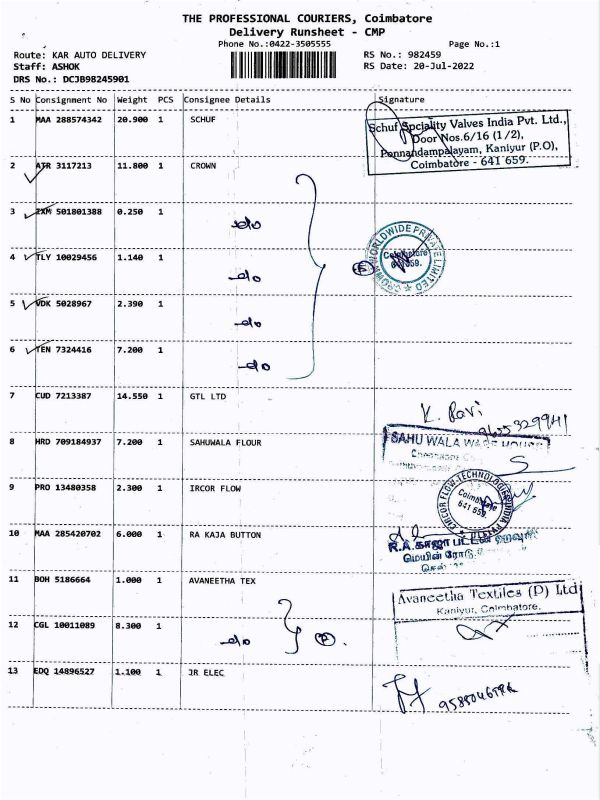 THE PROFESSIONAL COURIERS, Coimbatore
Delivery Runsheet - CMP
Phone No.:0422-3505555 Page No.:1
Route: KAR AUTO DELIVERY RS No.: 982459
Staff: ASHOK RS Date: 20-Jul-2022
DRS No.: DCJB98245901
S No Consignment No Weight PCS Consignee Details Signature
1 MAA 288574342 20.900 1 SCHUF
Schuf Spciality Valves India Pvt. Ltd.,
Door Nos.6/16 (1/2),
Ponnandampalayam, Kaniyur (P.O),
Coimbatore - 641 659.
2 ATR 3117213 11.800 1 CROWN
3 ZXM 501801388 0.250 1 -do
CROWN WORLDWIDE PRIVATE LIMITED
Coimbatore
641 659.
4 TLY 10029456 1.140 1 -do
5 VDK 5028967 2.390 1 -do
6 TEN 7324416 7.200 1 -do
7 CUD 7213387 14.550 1 GTL LTD
K. Ravi
9655329941
8 HRD 709184937 7.200 1 SAHUWALA FLOUR
SAHU WALA
9 PRO 13480358 2.300 1 IRCOR FLOW
CIRCOR FLOW TECHNOLOGIES INDIA
Coimbatore
641 659.
10 MAA 285420702 6.000 1 RA KAJA BUTTON
R.A. காஜா பட்டன்
மெயின் ரோடு,
11 BOH 5186664 1.000 1 AVANEETHA TEX
Avaneetha Textiles (P) Ltd
Kaniyur, Coimbatore.
12 CGL 10011089 8.300 1 -do (2).
13 EDQ 14896527 1.100 1 JR ELEC